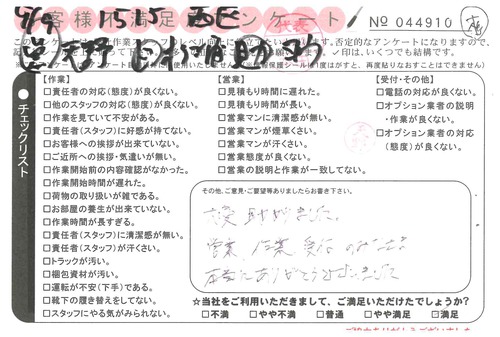 4/9 15:15 西区
お客様不満足アンケート!
№ 044910
【作業】
□責任者の対応(態度)が良くない。
□他のスタッフの対応(態度)が良くない。
□作業を見ていて不安がある。
□責任者(スタッフ)に好感が持てない。
□お客様への挨拶が出来ていない。
□ご近所への挨拶・気遣いが無い。
□作業開始前の内容確認がなかった。
□作業開始時間が遅れた。
□荷物の取り扱いが雑である。
□お部屋の養生が出来ていない。
□作業時間が長すぎる。
□責任者(スタッフ)に清潔感が無い。
□責任者(スタッフ)が汗くさい。
□トラックが汚い。
□梱包資材が汚い。
□運転が不安(下手)である。
□靴下の履き替えをしてない。
□スタッフにやる気がみられない。
【営業】
□見積もり時間に遅れた。
□見積もり時間が長い。
□営業マンに清潔感が無い。
□営業マンが煙草くさい。
□営業マンが汗くさい。
□営業態度が良くない。
□営業の説明と作業が一致してない。
【受付・その他】
□電話の対応が良くない。
□オプション業者の説明
・作業が良くない。
□オプション業者の対応
(態度)が良くない。
●チェックリスト
その他、ご意見・ご要望等ありましたらお書き下さい。
大変助かりました。
営業、作業、受付のみなさま
本当にありがとうございました
☆当社をご利用いただきまして、ご満足いただけたでしょうか?
□不満 □やや不満 □普通 □やや満足 □満足